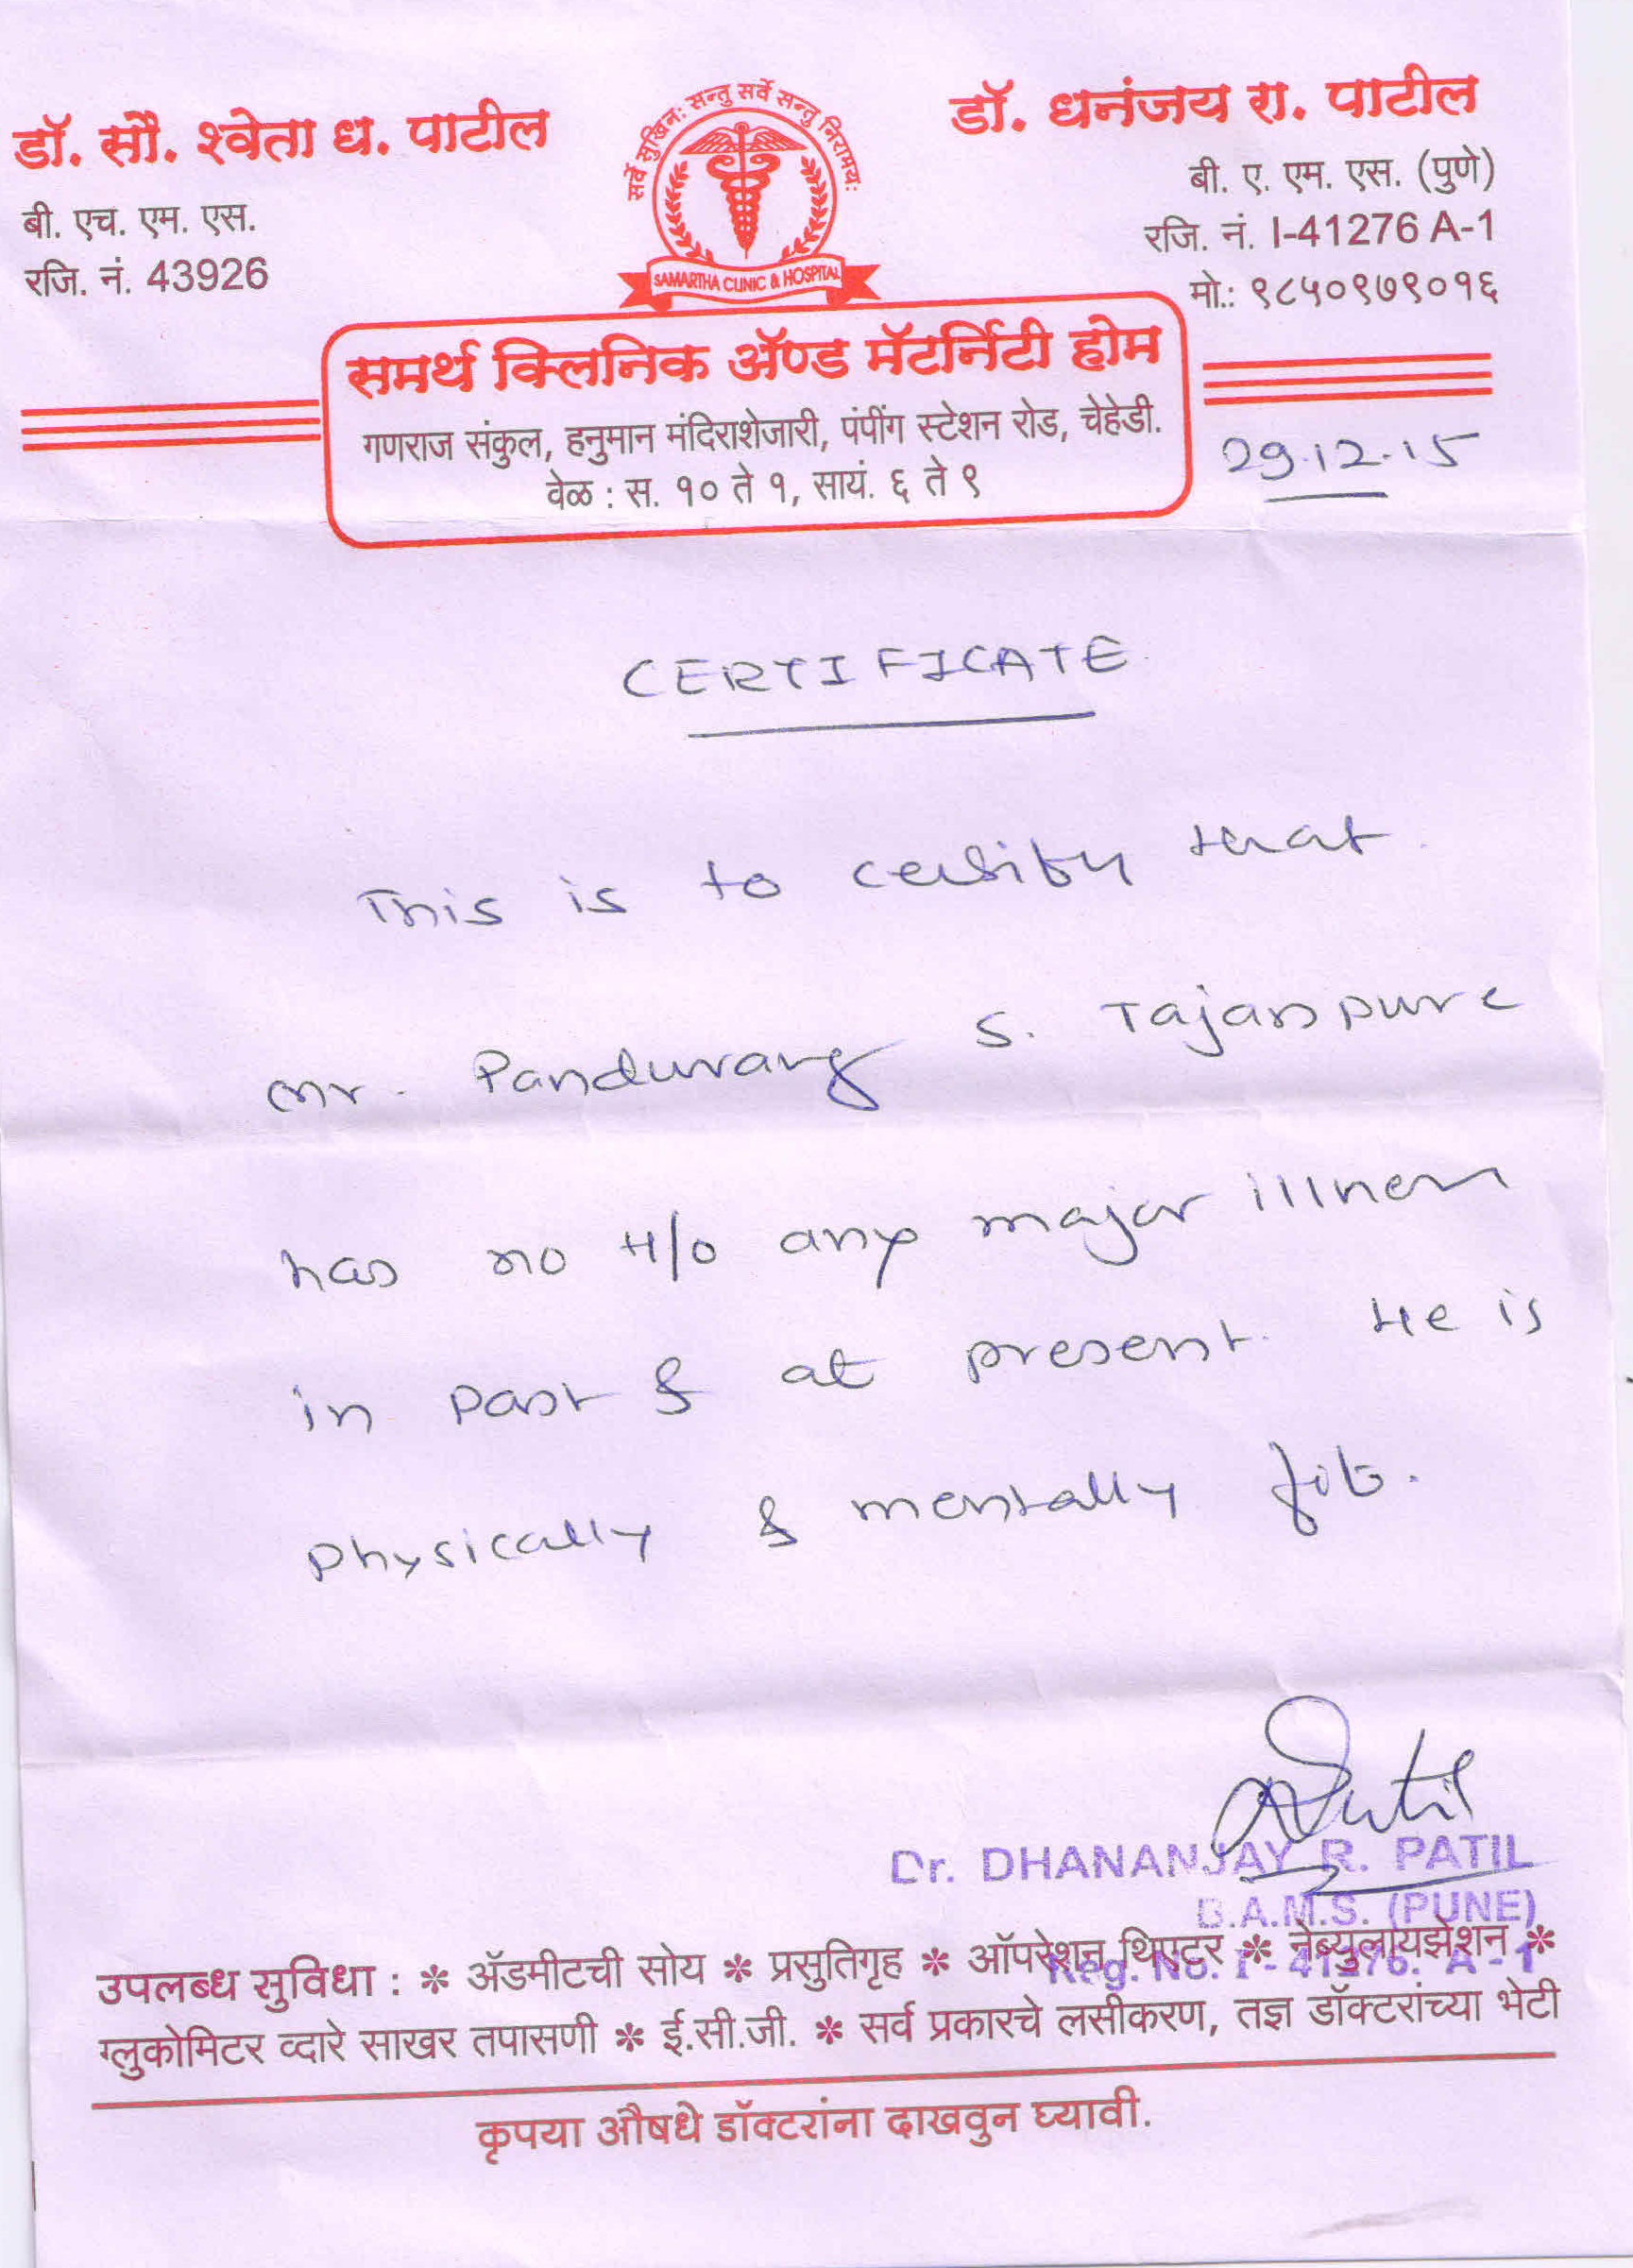 डॉ. सौ. श्वेता ध. पाटील
बी. एच. एम. एस.
रजि. नं. 43926
सर्वे सुखिनः सन्तु सर्वे सन्तु निरामयः
SAMARTHA CLINIC & HOSPITAL
डॉ. धनंजय रा. पाटील
बी. ए. एम. एस. (पुणे)
रजि. नं. I-41276 A-1
मो.: ९८५०९७९०१६
समर्थ क्लिनिक ॲण्ड मॅटर्निटी होम
गणराज संकुल, हनुमान मंदिराशेजारी, पंपींग स्टेशन रोड, चेहेडी.
वेळ : स. १० ते १, सायं. ६ ते ९
29.12.15
CERTIFICATE
This is to certify that
Mr. Pandurang S. Tajanpure
has no H/o any major illness
in past & at present. He is
physically & mentally fit.
Patil
Dr. DHANANJAY R. PATIL
B.A.M.S. (PUNE)
Reg. No. I - 41276. A - 1
उपलब्ध सुविधा : * ॲडमीटची सोय * प्रसुतिगृह * ऑपरेशन थिएटर * नेब्युलायझेशन *
ग्लुकोमिटर व्दारे साखर तपासणी * ई.सी.जी. * सर्व प्रकारचे लसीकरण, तज्ञ डॉक्टरांच्या भेटी
कृपया औषधे डॉक्टरांना दाखवुन घ्यावी.